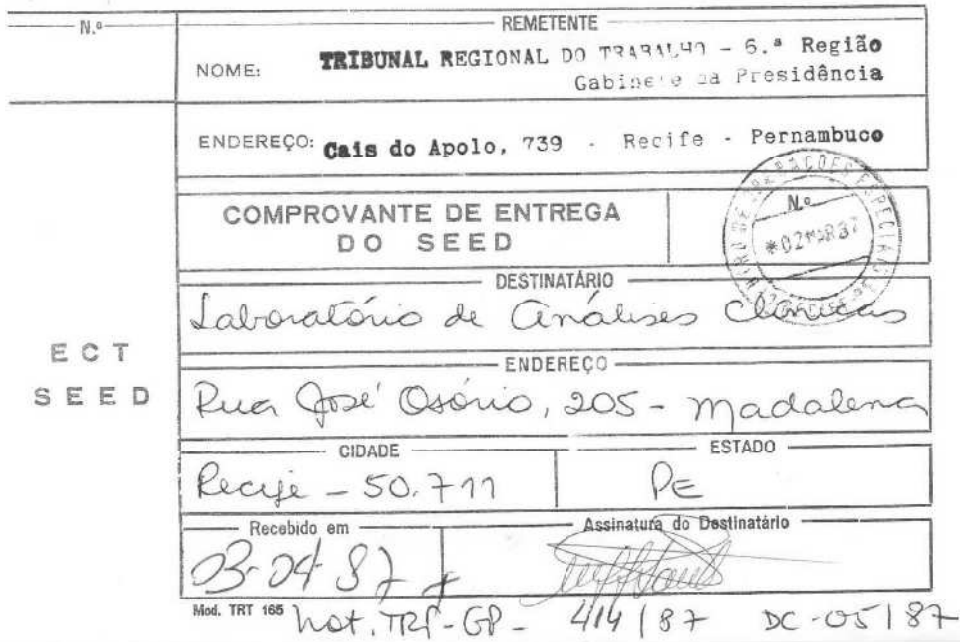 N.º
REMETENTE
NOME: TRIBUNAL REGIONAL DO TRABALHO - 6.ª Região
Gabinete da Presidência
ENDEREÇO: Cais do Apolo, 739 - Recife - Pernambuco
COMPROVANTE DE ENTREGA
DO SEED
N.º
OPERAÇÕES ESPECIAIS
*02 MAR 87
DESTINATÁRIO
Laboratório de Análises Clínicas
ECT
SEED
ENDEREÇO
Rua José Osório, 205 - Madalena
CIDADE
ESTADO
Recife - 50.711
PE
Recebido em
Assinatura do Destinatário
03-04-87
Mod. TRT 165
Not. TRT-GP- 414/87 DC-05/87